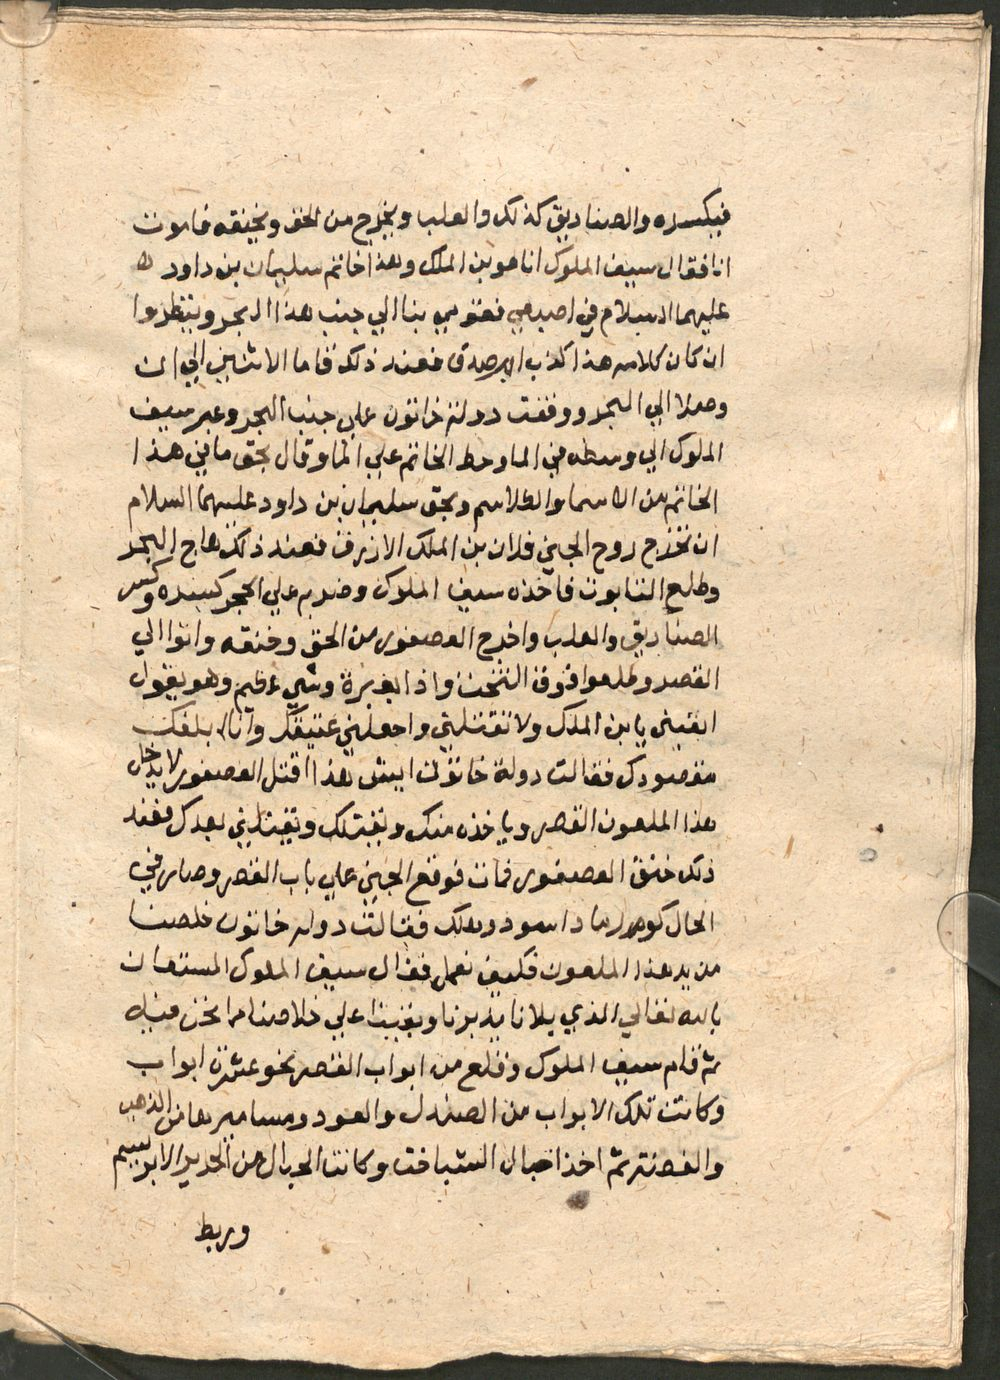 فيكسره والصناديق كذلك والعلب ويخرج من الحق ويخنقه فاموت
انا فقال سيف الملوك انا هو بن الملك وهذا خاتم سليمان بن داود
عليهما السلام في اصبعي فقومي بنا الي جنب هذا البحر وينظروا
ان كان كلامه هذا كذب ام صدق فعند ذلك قاما الاثنين الي ان
وصلا الي البحر ووقفت دولة خاتون علي جنب البحر وعبر سيف
الملوك الي وسطه في الما وحط الخاتم علي الما وقال بحق ما في هذا
الخاتم من الاسما والطلاسم وبحق سليمان بن داود عليهما السلام
ان تخرج روح الجني فلان بن الملك الازرق فعند ذلك هاج البحر
وطلع التابوت فاخذه سيف الملوك وضربه علي الحجر كسره وكسر
الصناديق والعلب واخرج العصفور من الحق وخنقه واتوا الي
القصر وطلعوا فوق التخت واذا بغبرة وشي عظيم وهو يقول
ابقيني يا بن الملك ولا تقتلني واجعلني عتيقك وانا ابلغك
مقصودك فقالت دولة خاتون ايش هذا اقتل العصفور لا يدخل
هذا الملعون القصر وياخذه منك ويقتلك ويقتلني بعدك فعند
ذلك خنق العصفور فمات فوقع الجني علي باب القصر وصار في
الحال كوم رماد اسود وهلك فقالت دوله خاتون خلصنا
من يد هذا الملعون فكيف نعمل فقال سيف الملوك المستعان
بالله تعالي الذي بلانا يدبرنا ويغيثنا علي خلاصنا مما نحن فيه
ثم قام سيف الملوك وقلع من ابواب القصر نحو عشرة ابواب
وكانت تلك الابواب من الصندل والعود ومساميرها من الذهب
والفضة ثم اخذا حبال الشباخت وكانت الحبال من الحرير الابريسيم
وربط